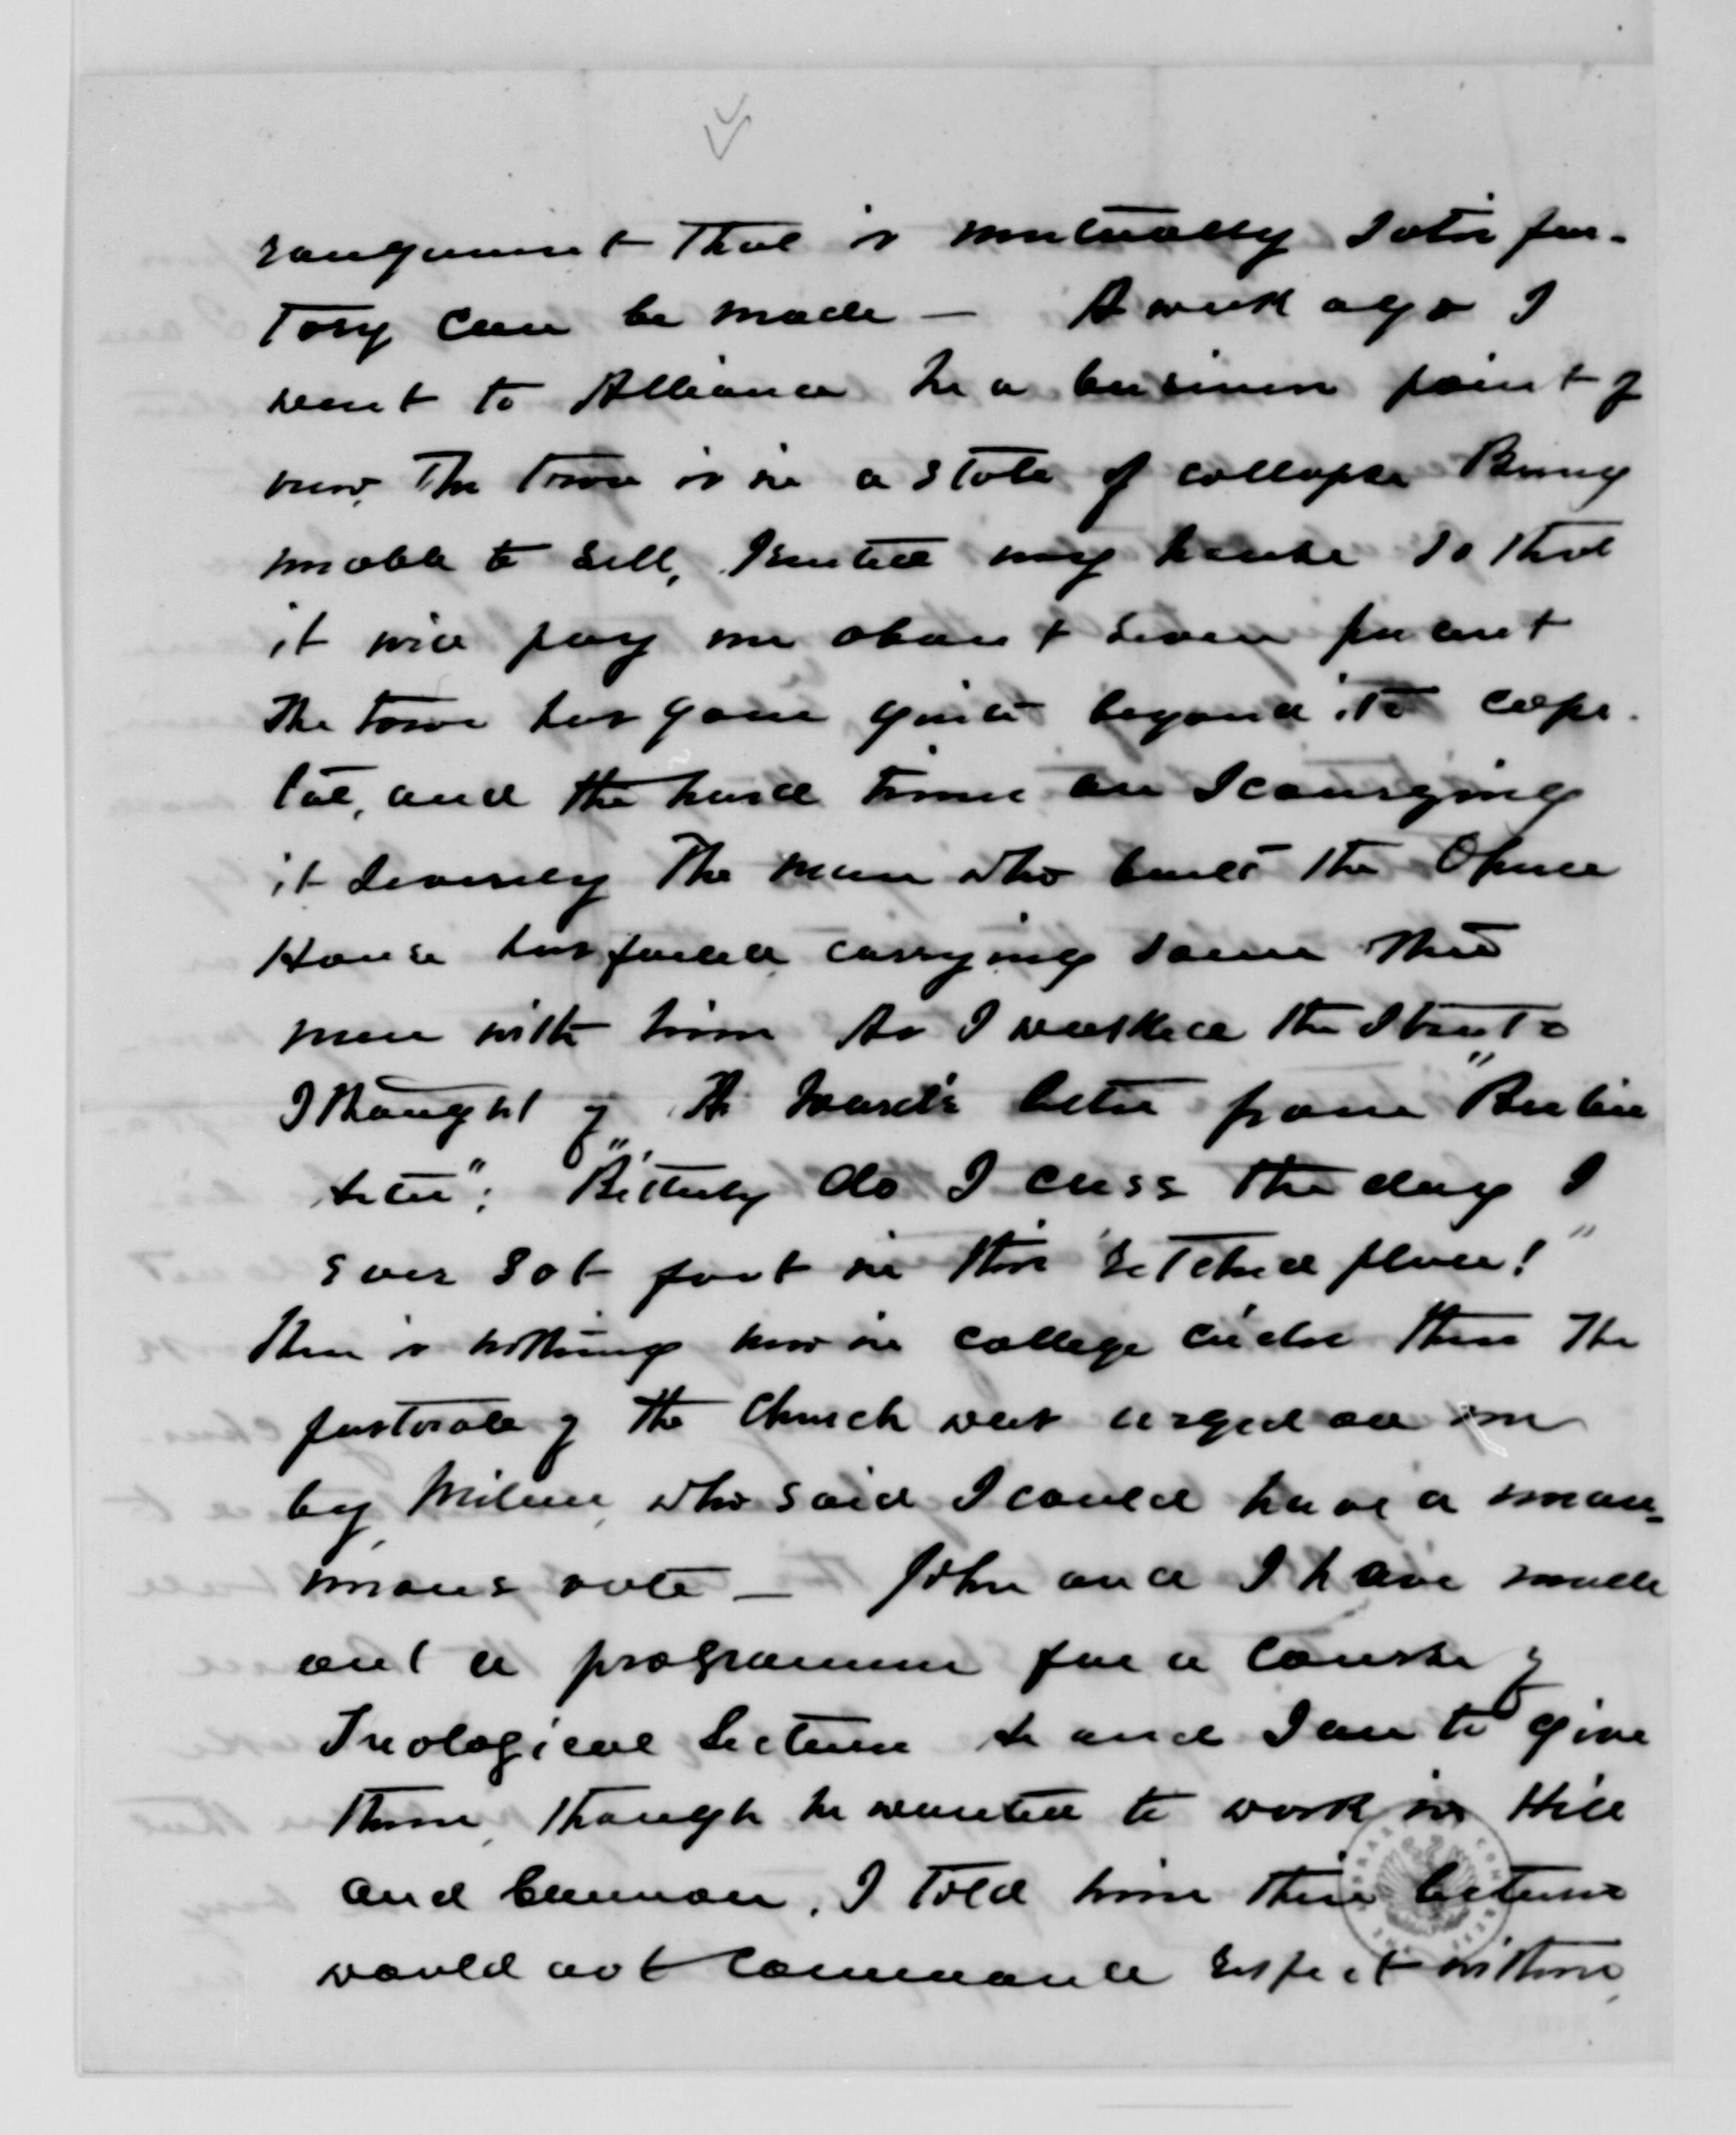 rangement that is mutually satisfac-
tory can be made — A week ago I
went to Alliance In a business point of
view, The town is in a state of collapse Being
unable to sell, I rented my house so that
it will pay me about seven per cent
The town has gone quite beyond its capi-
tal, and the hard times are scourging
it severely The man who built the Opera
House has failed carrying some
men with him As I walked the streets
I thought of A Ward's letter from "
": "Bitterly do I cuss the day I
ever sot foot in this retched place!"
There is nothing new in college circles there The
pastorate of the Church was urged on me
by Milner, who said I could have a unan-
imous vote — John and I have made
out a programme for a course of
Theological Lectures He and I are to give
them, though he wanted to work in Hill
and Cannon, I told him their lectures
would not command respect with me,